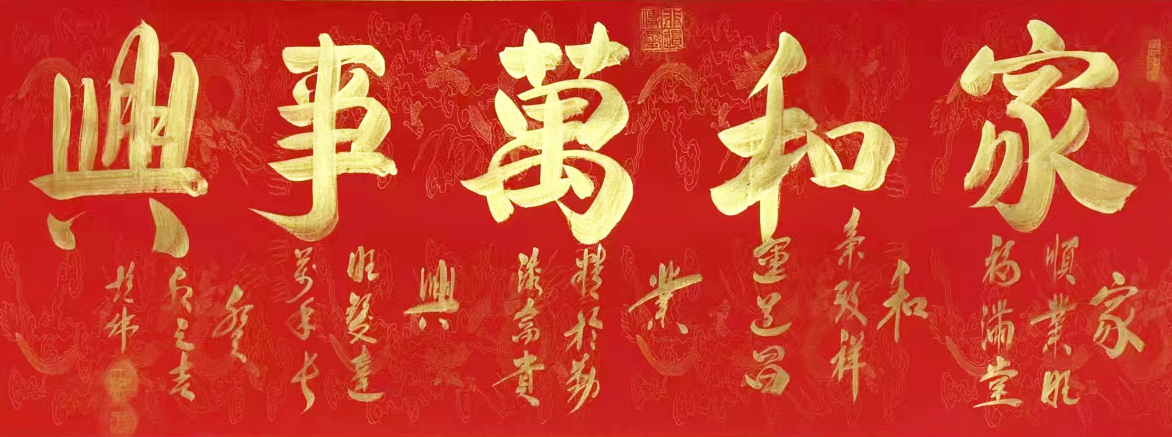 家和萬事興
家
順業旺
福滿堂
和
氣致祥
運道昌
業
精於勤
添富貴
興
旺發達
萬年長
癸
卯之吉